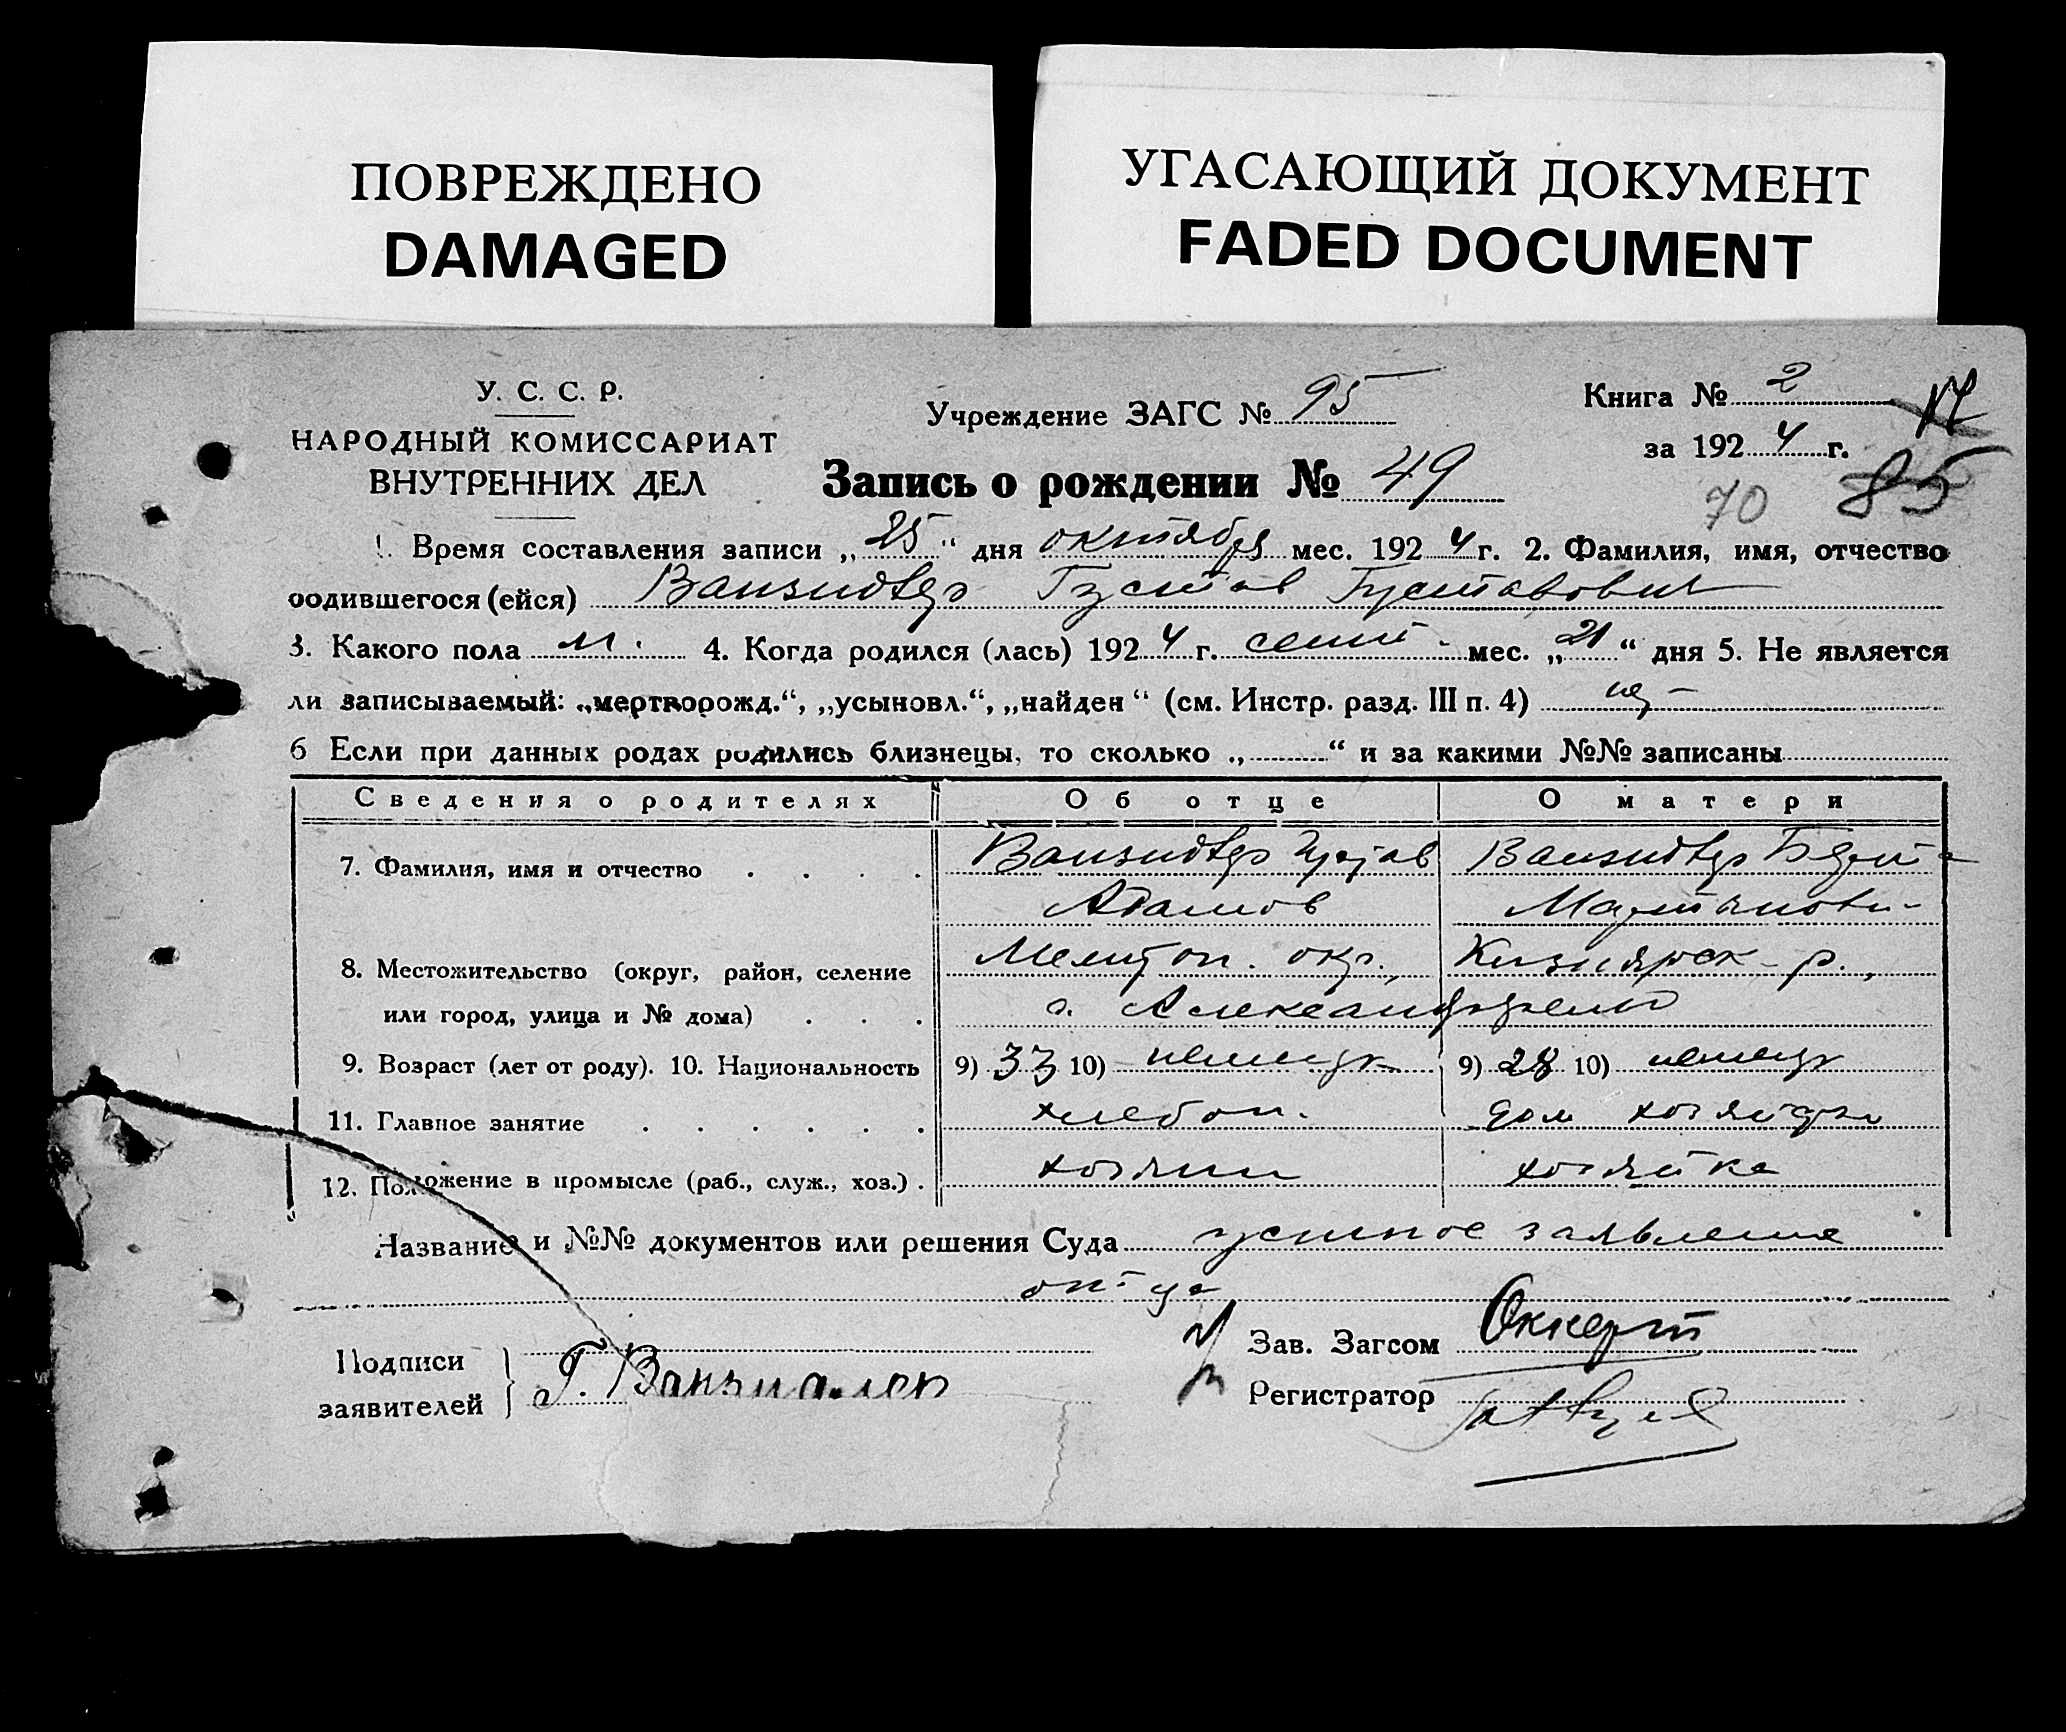 ПОВРЕЖДЕНО
DAMAGED
УГАСАЮЩИЙ ДОКУМЕНТ
FADED DOCUMENT
У. С. С. Р.
НАРОДНЫЙ КОМИССАРИАТ
ВНУТРЕННИХ ДЕЛ
Учреждение ЗАГС № 95
Книга № 2
за 1924 г.
Запись о рождении № 49
70 85
1. Время составления записи „25“ дня октября мес. 1924 г. 2. Фамилия, имя, отчество
родившегося (ейся) Ванзидлер Густав Густавович
3. Какого пола м. 4. Когда родился (лась) 1924 г. сент. мес. „21“ дня 5. Не является
ли записываемый: „мертворожд.“, „усыновл.“, „найден“ (см. Инстр. разд. III п. 4)
6 Если при данных родах родились близнецы, то сколько „ “ и за какими №№ записаны
Сведения о родителях Об отце О матери
7. Фамилия, имя и отчество Ванзидлер Густав Ванзидлер
Адамов
8. Местожительство (округ, район, селение Мелитоп. окр.,
или город, улица и № дома) с.
9. Возраст (лет от роду). 10. Национальность 9) 33 10) немецк 9) 28 10) немецк
11. Главное занятие хлебоп. дом
12. Положение в промысле (раб., служ., хоз.) хозяин хозяйка
Название и №№ документов или решения Суда устное заявление
отца
Подписи
заявителей
Г.
Зав. Загсом Оккерт
Регистратор